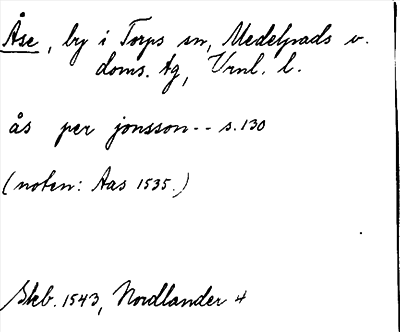 Åse, by i Torps sn, Medelpads v.
doms. tg, Vrnl. l.
ås per jonsson-- s.130
(noten: Aas 1535.)
Skb. 1543, Nordlander 4